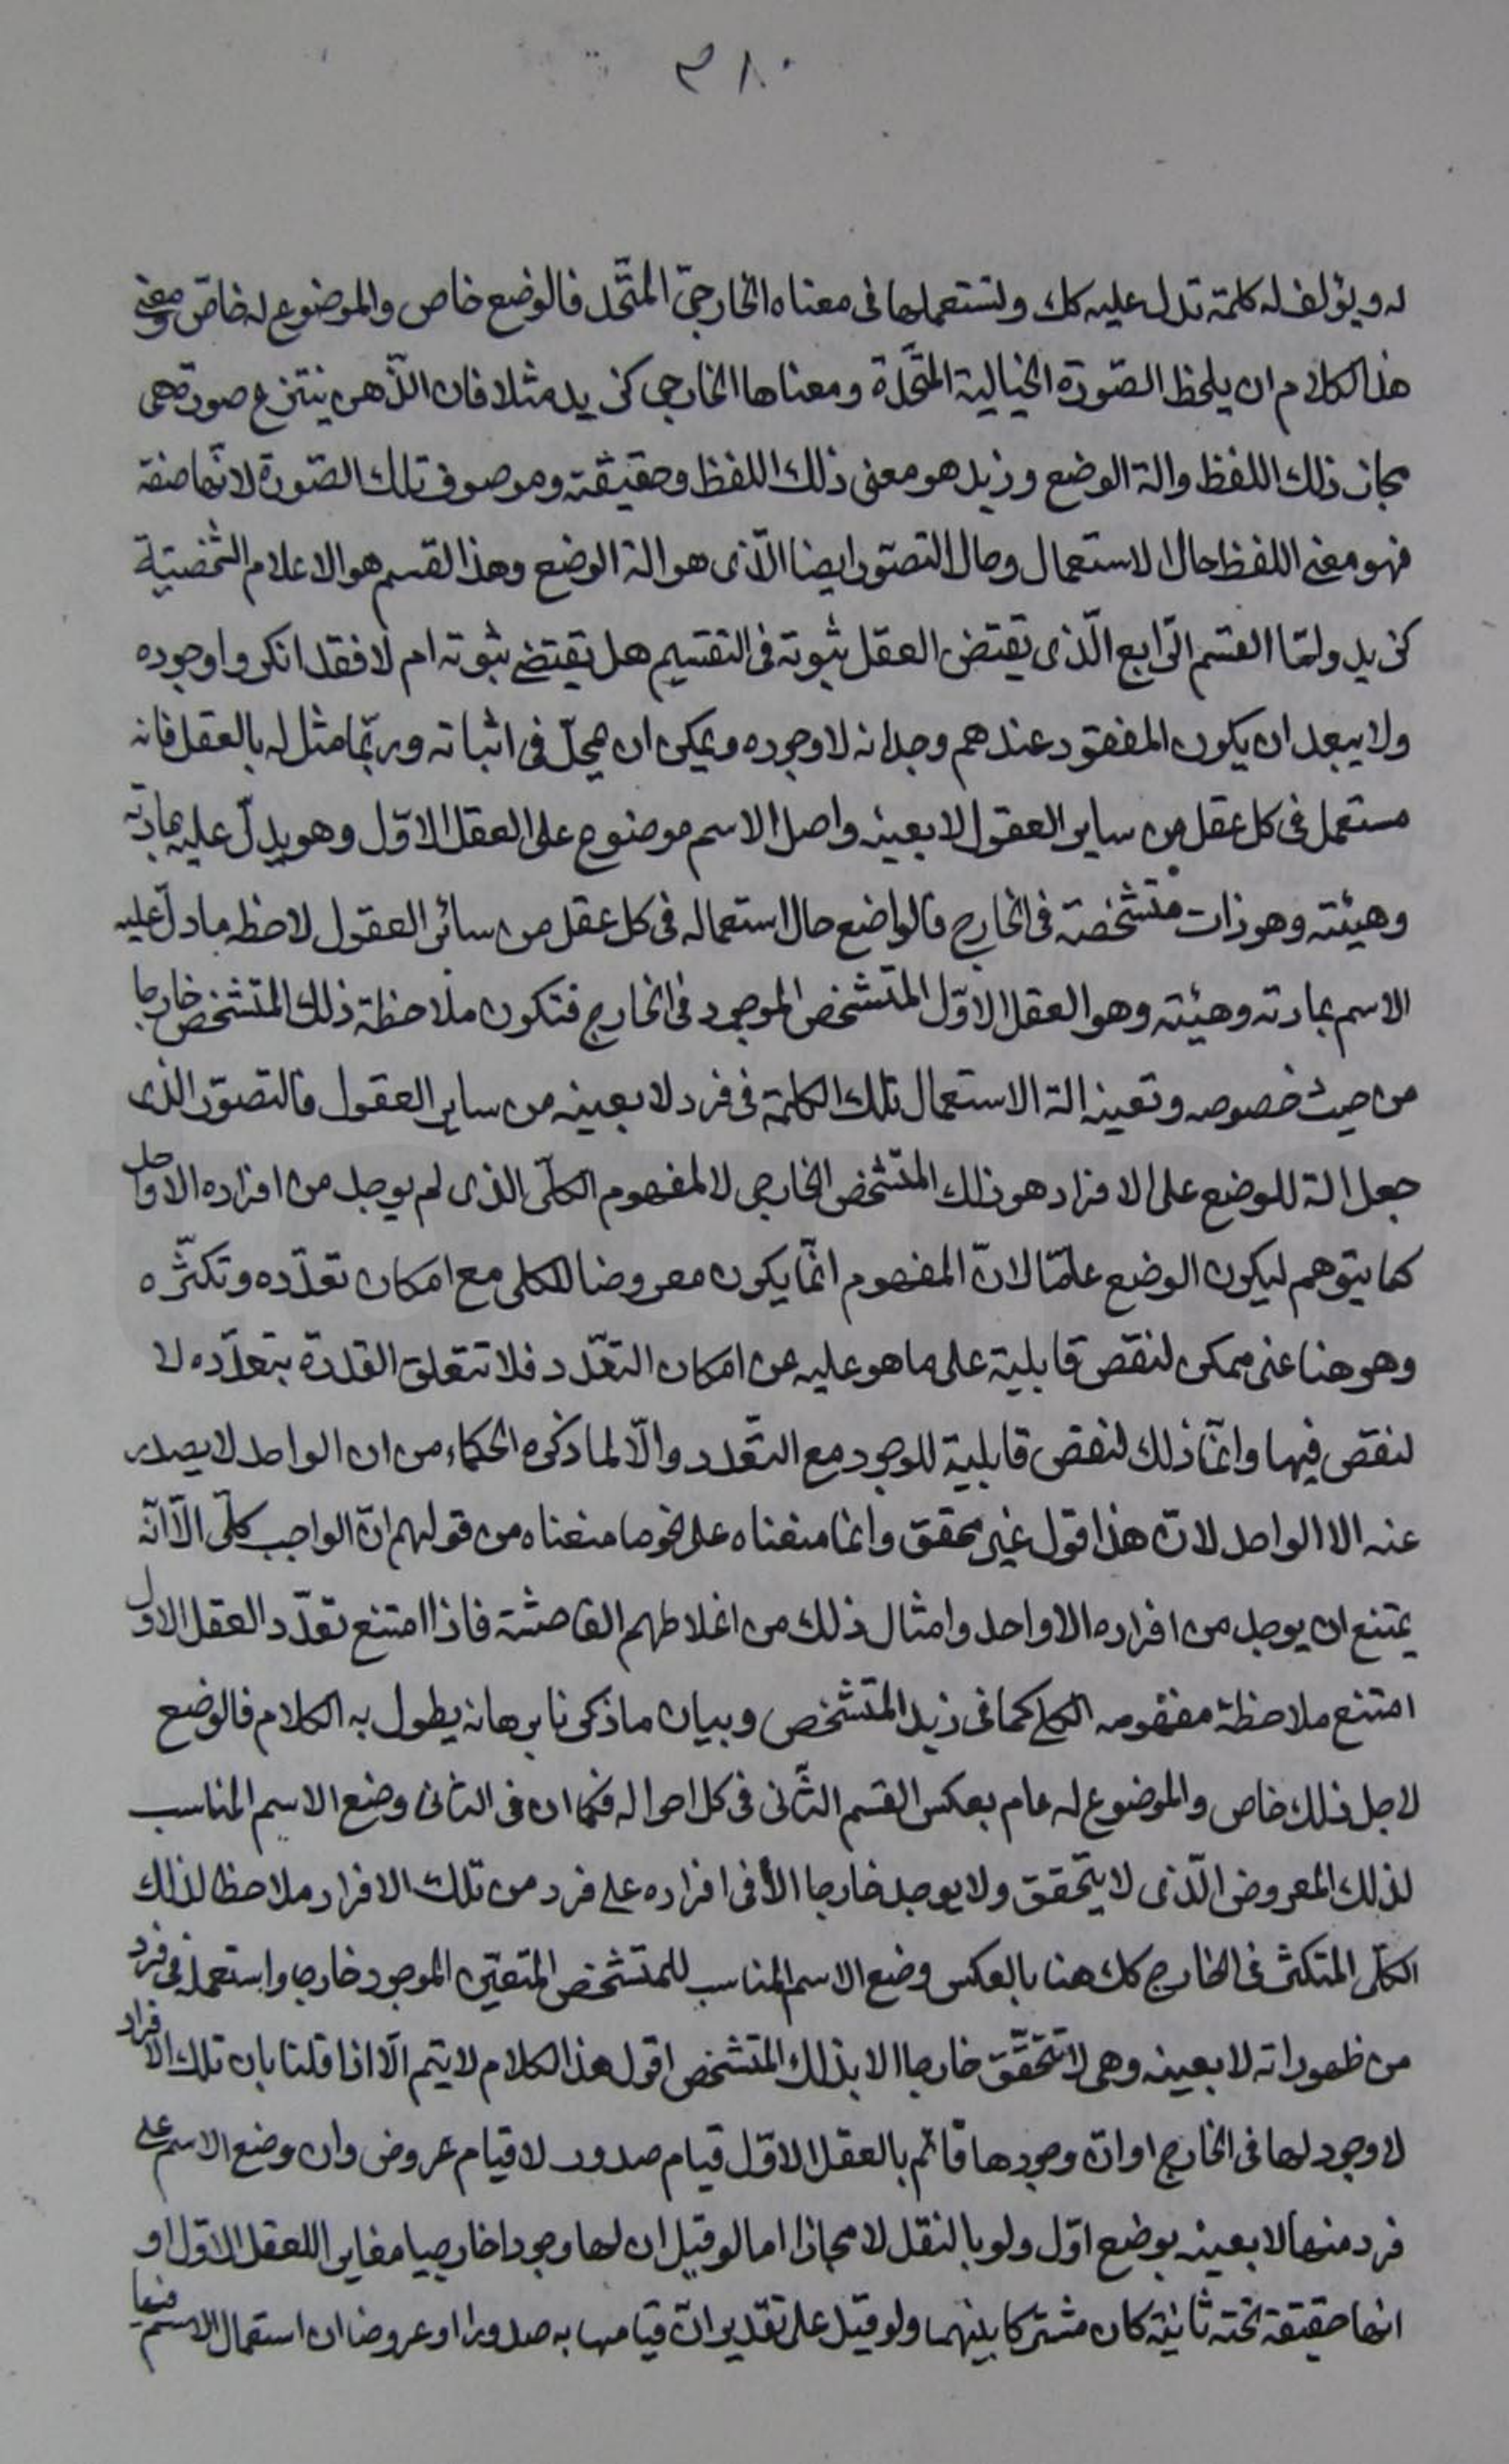 ٣٨٠
له ويؤلف له كلمة تدل عليه كك وتستعملها فى معناه الخارجىّ المتّحد فالوضع خاص والموضوع له خاصّ ومعنى
هذا الكلام ان يلحظ الصّورة الخيالية المتّحدة ومعناها الخارجى كزيد مثلا فان الذّهن ينتزع صورة هى
مجاز ذلك اللفظ والة الوضع وزيد هو معنى ذلك اللفظ وحقيقته وموصوف تلك الصّورة لانّها صفة
فهو معنى اللفظ حال الاستعمال وحال التصوّر ايضا الّذى هو الة الوضع وهذا القسم هو الاعلام الشخصيّة
كزيد وامّا القسم الرّابع الّذى يقتضى العقل ثبوته فى التقسيم هل يقتضى ثبوته ام لا فقد انكروا وجوده
ولا يبعد ان يكون المفقود عندهم وجدانه لا وجوده ويمكن ان يتمحّل فى اثباته وربّما مثل له بالعقل فانه
مستعمل فى كل عقل من ساير العقول لا بعينه واصل الاسم موضوع على العقل الاوّل وهو يدلّ عليه بمادّته
وهيئته وهو ذات متشخصة فى الخارج فالواضع حال استعماله فى كل عقل من سائر العقول لاحظ ما دل عليه
الاسم بمادته وهيئته وهو العقل الاوّل المتشخص الموجود فى الخارج فتكون ملاحظة ذلك المتشخص خارجا
من حيث خصوصه وتعينه الة الاستعمال تلك الكلمة فى فرد لا بعينه من ساير العقول فالتصوّر الذى
جعل الة للوضع على الافراد هو ذلك المتشخص الخارجى لا لمفهوم الكلّى الذى لم يوجد من افراده الا واحد
كما يتوهم ليكون الوضع عامّا لانّ المفهوم انّما يكون معروضا للكلى مع امكان تعدّده وتكثّره
وهو هنا غير ممكن لنقص قابلية على ما هو عليه عن امكان التعدّد فلا تتعلق القدرة بتعدّده لا
لنقص فيها وانّما ذلك لنقص قابلية للوجود مع التعّدد والّا لما ذكره الحكماء من ان الواحد لا يصدر
عنه الا الواحد لانّ هذا قول غير محقق وانما منعناه على نحو ما منعناه من قولهم انّ الواجب كلّى الّا انّه
يمتنع ان يوجد من افراده الا واحد وامثال ذلك من اغلاطهم الفاحشة فاذا امتنع تعدّد العقل الاول
امتنع ملاحظة مفهومه الكلى كما فى زيد المتشخص وبيان ما ذكرنا برهانه يطول به الكلام فالوضع
لاجل ذلك خاص والموضوع له عام بعكس القسم الثّانى فى كل احواله فكما ان فى الثانى وضع الاسم المناسب
لذلك المعروض الّذى لا يتحقق ولا يوجد خارجا الّا فى افراده على فرد من تلك الافراد ملاحظا لذلك
الكلّى المتكثر فى الخارج كك هنا بالعكس وضع الاسم المناسب للمتشخص المتعيّن الموجود خارجا واستعمله فى فرد
من ظهوراته لا بعينه وهى لا تتحقّق خارجا الا بذلك المتشخص اقول هذا الكلام لا يتم الّا اذا قلنا بان تلك الافراد
لا وجود لها فى الخارج او انّ وجودها قائم بالعقل الاوّل قيام صدور لا قيام عروض وان وضع الاسم على
فرد منها لا بعينه بوضع اوّل ولو بالنقل لا مجازا اما لو قيل ان لها وجودا خارجيا مغايرا للعقل الاوّل او
انها حقيقة تحته ثانية كان مشتركا بينهما ولو قيل على تقدير انّ قيامها به صدورا او عروضا ان استعمال الاسم فيها